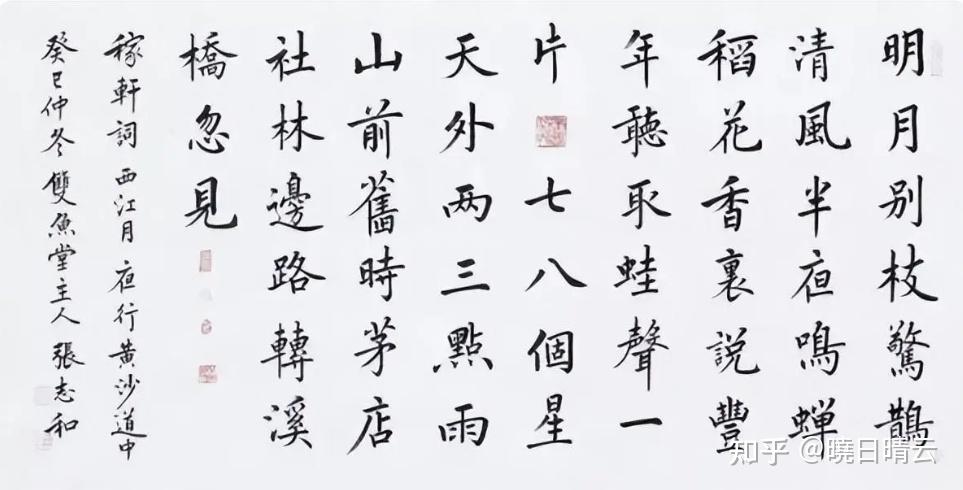 明月别枝驚鵲
清風半夜鳴蝉
稻花香裏説豐
年聽取蛙聲一
片 七八個星
天外两三點雨
山前舊時茅店
社林邊路轉溪
橋忽見
稼軒詞 西江月 夜行黄沙道中
癸巳仲冬 雙魚堂主人 張志和
知乎 @曉日晴云